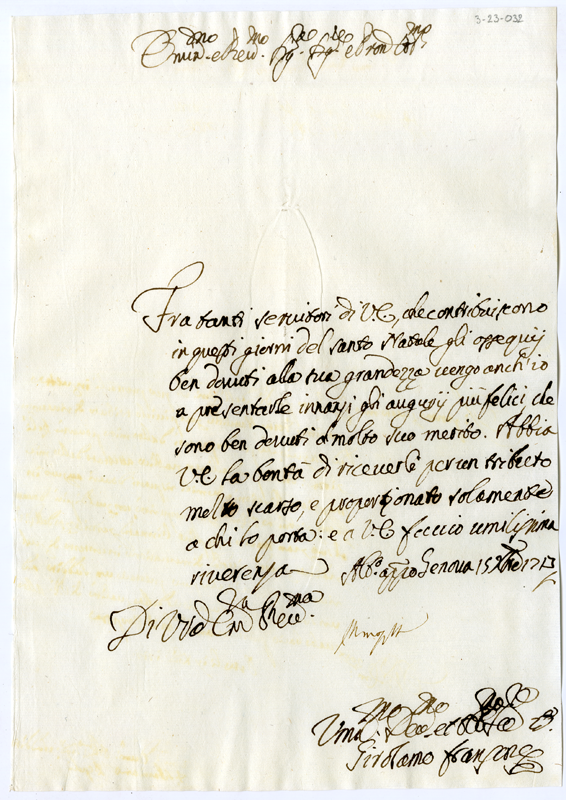 3-23-032
Emin.mo e Rev.mo Sig.r Sig.r e Pron Col.mo
Fra tanti servitori di V.E., che contribuiscono
in questi giorni del santo Natale gli ossequij
ben devuti alla sua grandezza vengo anch'io
a presentarle innanzi gli augurij più felici che
sono ben devuti al molto suo merito. Abbia
V.E. la bontà di riceverli per un tributo
molto scarso, e proporzionato solamente
a chi lo porta: e a V.E. faccio umilissima
riverenza Genova 15 Xbre 1713
Di V.ra Em.za Rev.ma
Um.mo Dev.mo et
Girolamo